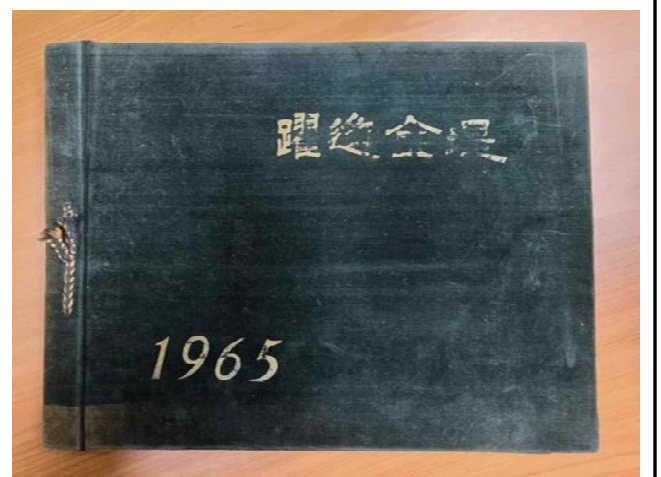 躍進金堤
1965